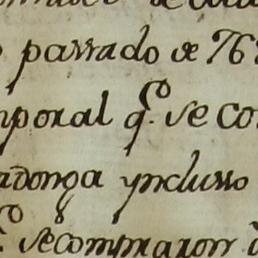 passado de 768
temporal q.e se co
adonga yncluso
8 se compraron